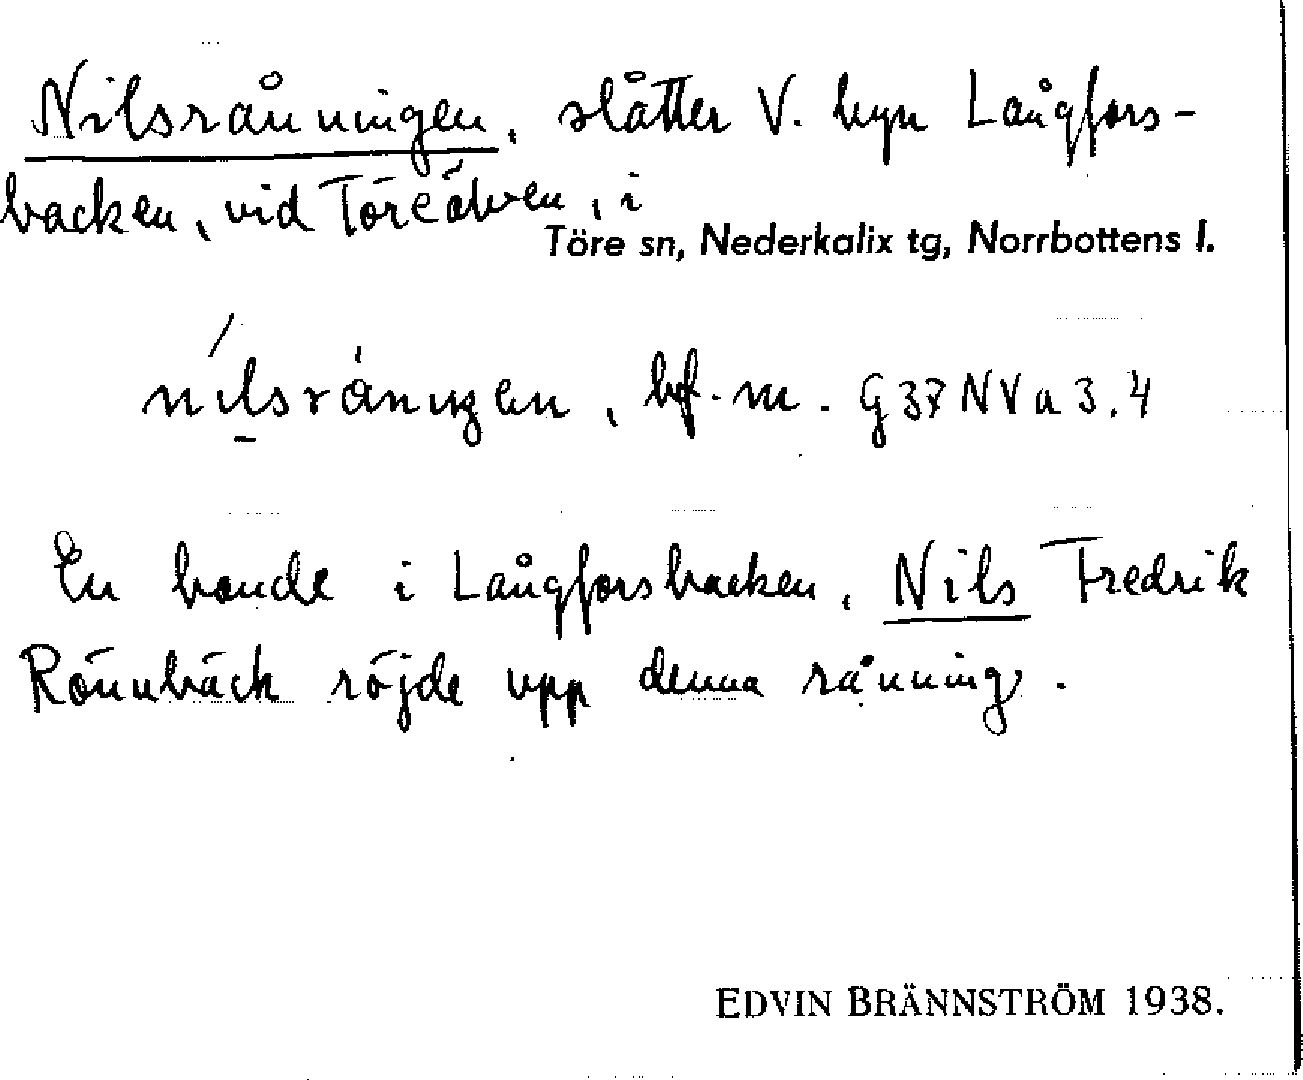 Nilsrånningen, slåtter V. byn Långfors-
backen, vid Töreälven, i
Töre sn, Nederkalix tg, Norrbottens l.
nílsråniŋen, bf. m. G37NVa3.4
En bonde i Långforsbacken, Nils Fredrik
Rönnbäck röjde upp denna rånning.
EDVIN BRÄNNSTRÖM 1938.